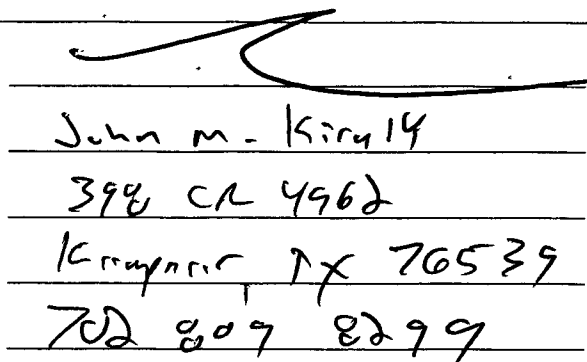 John M. Kiraly
398 CR 4962
Kempner TX 76539
702 809 8299